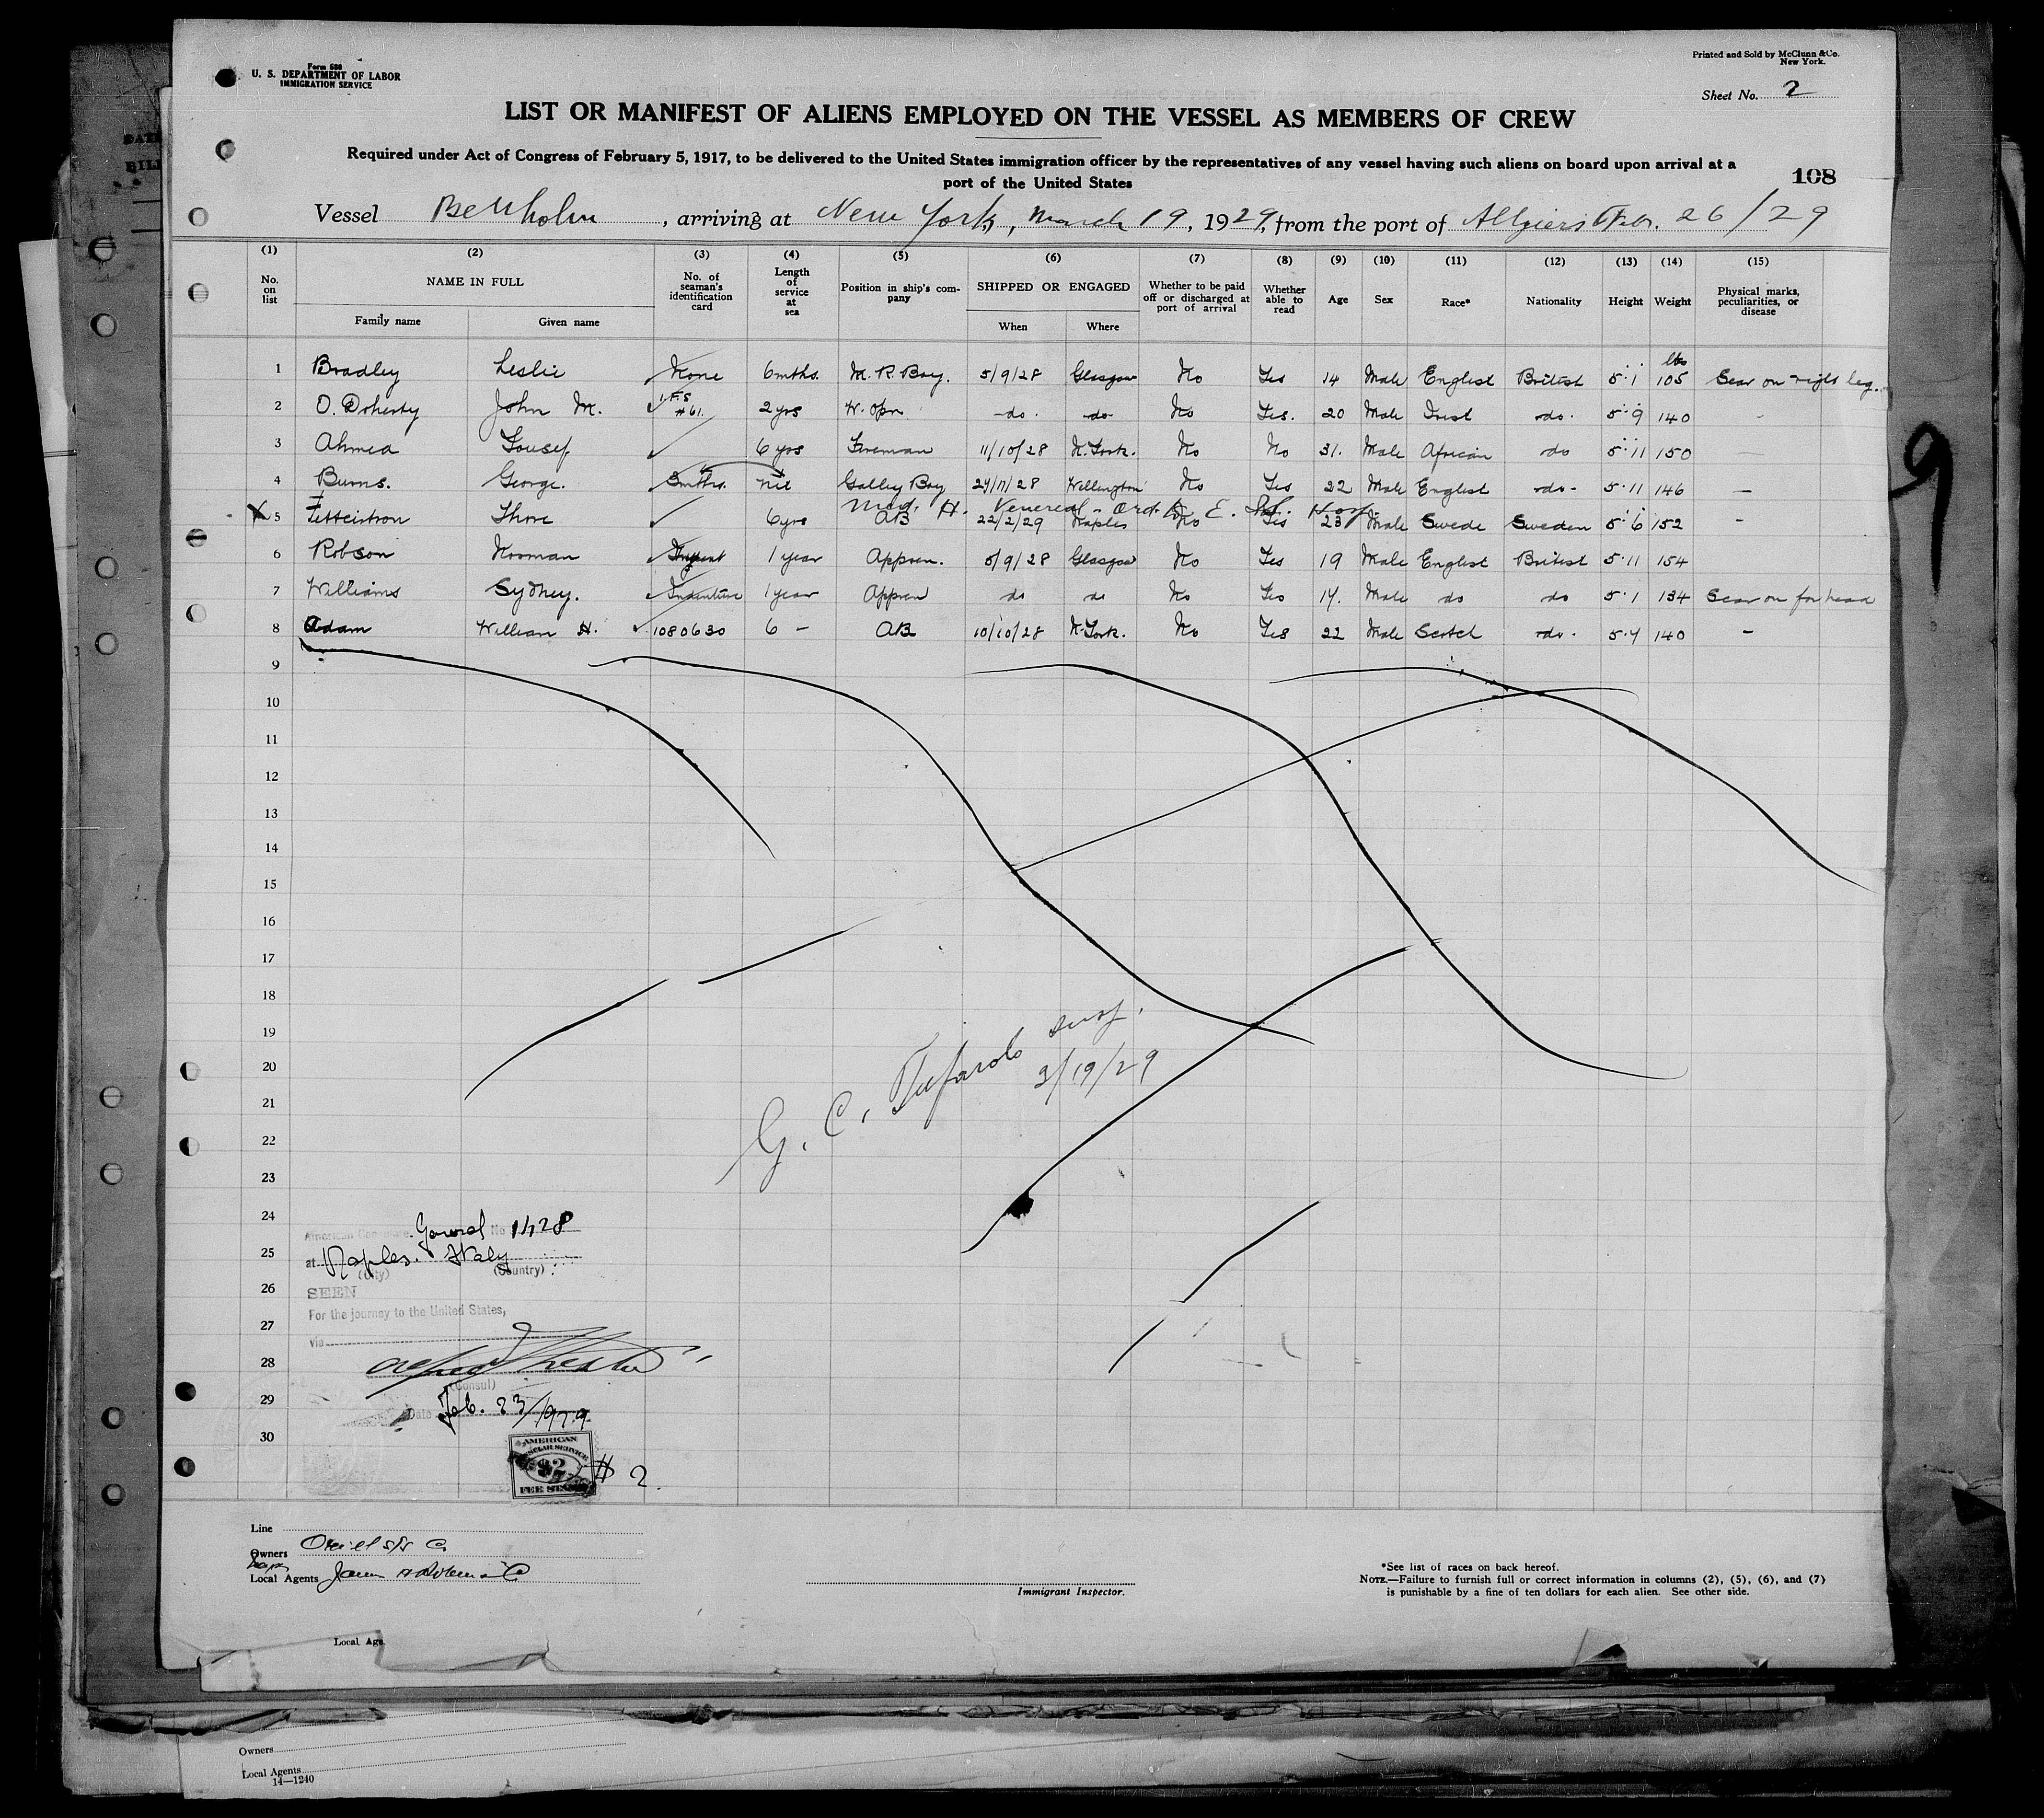 Form 680
U. S. DEPARTMENT OF LABOR
IMMIGRATION SERVICE
Printed and Sold by McClunn & Co.
New York.
Sheet No. 2
LIST OR MANIFEST OF ALIENS EMPLOYED ON THE VESSEL AS MEMBERS OF CREW
Required under Act of Congress of February 5, 1917, to be delivered to the United States immigration officer by the representatives of any vessel having such aliens on board upon arrival at a
port of the United States
108
Vessel Bellholm, arriving at New York, March 19, 1929, from the port of Algiers Feb. 26/29
(1) (2) (3) (4) (5) (6) (7) (8) (9) (10) (11) (12) (13) (14) (15)
No. on list NAME IN FULL No. of seaman's identification card Length of service at sea Position in ship's company SHIPPED OR ENGAGED Whether to be paid off or discharged at port of arrival Whether able to read Age Sex Race* Nationality Height Weight Physical marks, peculiarities, or disease
Family name Given name When Where
lbs
1 Bradley Leslie None 6mths. M. R. Boy. 5/9/28 Glasgow No Yes 14 Male English British 5·1 105 Scar on right leg.
2 O. Doherty John M. #61. 2 yrs W. Opr -do- -do- No Yes. 20 Male Irish -do- 5·9 140 -
3 Ahmed Yousef 6 yrs Fireman 11/10/28 N. York. No No 31. Male African do 5·11 150 —
4 Burns. George. 3mths. nil Galley Boy 24/11/28 Wellington No Yes 22 Male English -do- 5·11 146 —
Med. H. Venereal - Ord. E. Isl. Hosp.
X 5 Thore 6 yrs AB 22/2/29 Naples No Yes 23 Male Swede Sweden 5·6 152 -
6 Robson Norman 1 year Appren. 5/9/28 Glasgow No Yes 19 Male English British 5·11 154
7 Williams Sydney. Indenture 1 year Appren do do No Yes 17. Male do do 5·1 134 Scar on forhead
8 Adam William H. 1080630 6 - AB 10/10/28 N. York. No Yes 22 Male Scotch -do- 5·7 140 -
9
10
11
12
13
14
15
16
17
18
19
20
21
22
23
24
25
26
27
28
29
30
9
G. C. Tufarolo Insp.
3/19/29
American Consulate General No
at Naples. Italy
(City) (Country)
SEEN
For the journey to the United States,
via
(Consul)
Date Feb. 23/1929
AMERICAN
CONSULAR SERVICE
$2
FEE STAMP
$ 2.
Line
Owners Oriel S/S Co
Local Agents
Immigrant Inspector.
*See list of races on back hereof.
NOTE.—Failure to furnish full or correct information in columns (2), (5), (6), and (7)
is punishable by a fine of ten dollars for each alien. See other side.
Local Age
Owners
Local Agents
14—1240